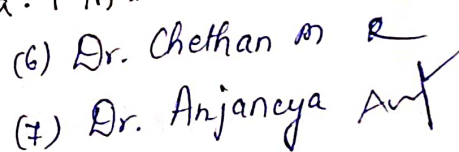 (6) Dr. Chethan M R
(7) Dr. Anjaneya